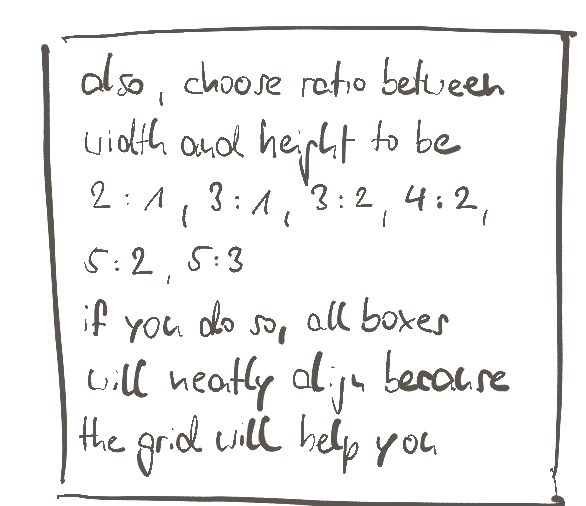 also, choose ratio between
width and height to be
2:1, 3:1, 3:2, 4:2,
5:2, 5:3
if you do so, all boxes
will neatly align because
the grid will help you